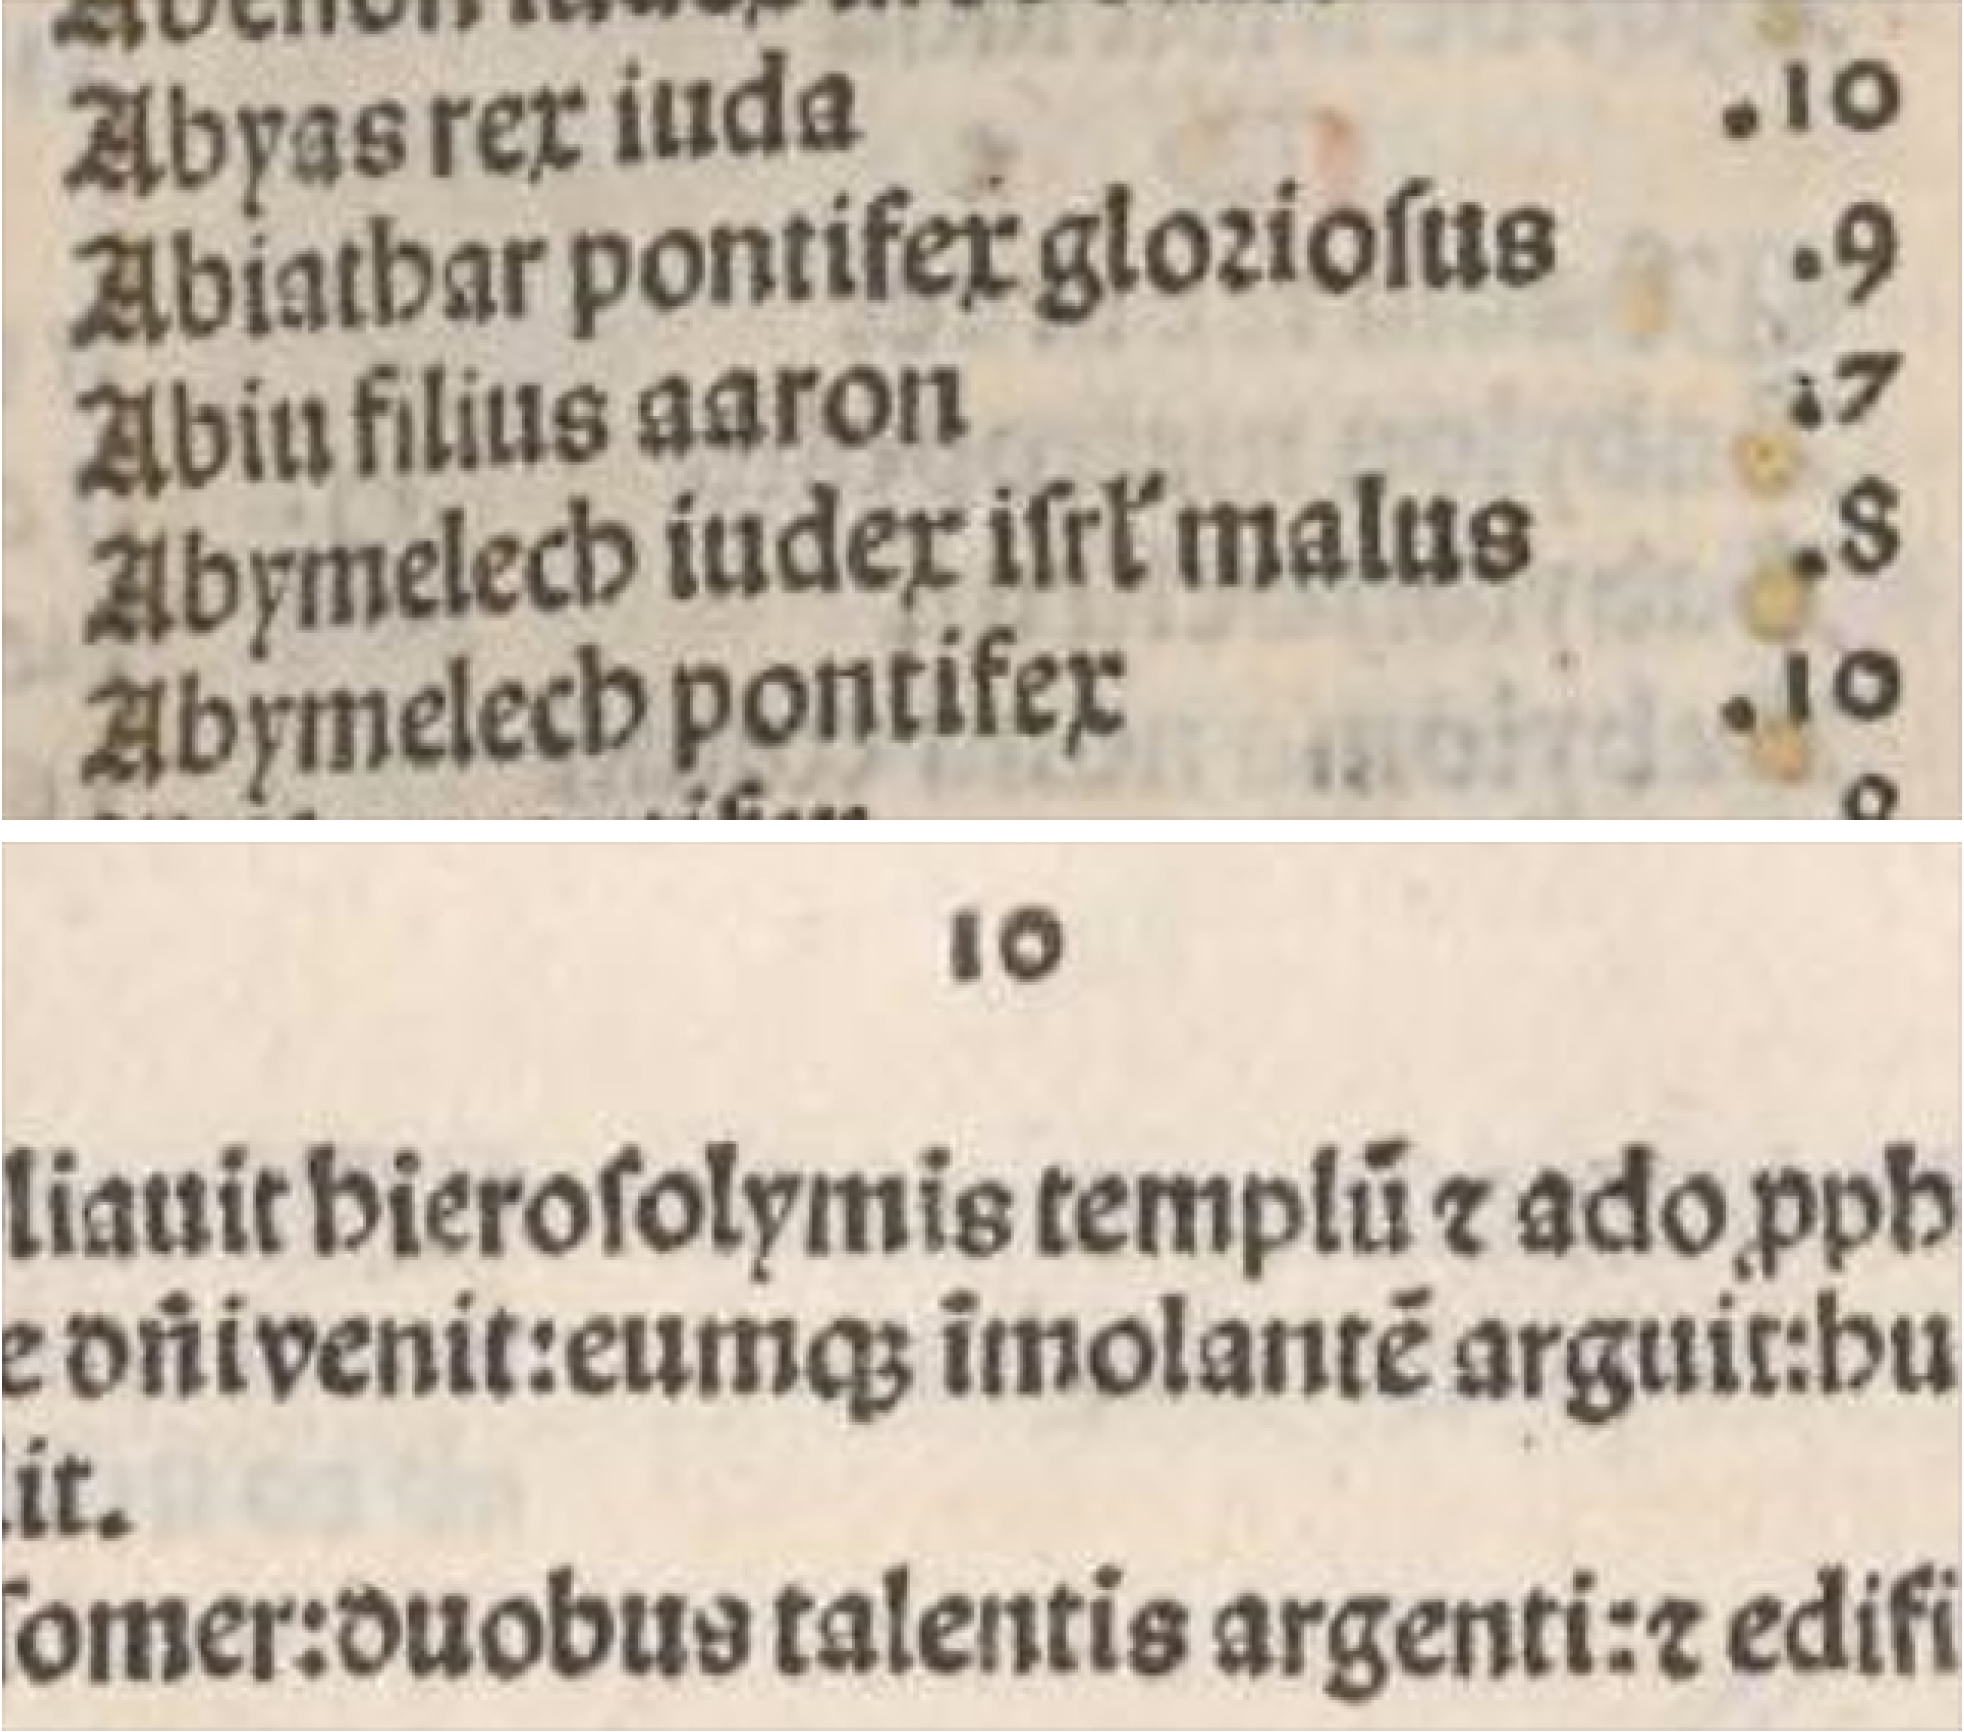 Abyas rex iuda .10
Abiathar pontifex gloriosus .9
Abiu filius aaron .7
Abymelech iudex isrl' malus .8
Abymelech pontifex .10
10
liauit hierosolymis templū ⁊ ado ꝓph
e dn̄i venit:eumqꝫ īmolantē arguit:hu
it.
omer:duobus talentis argenti:⁊ edifi